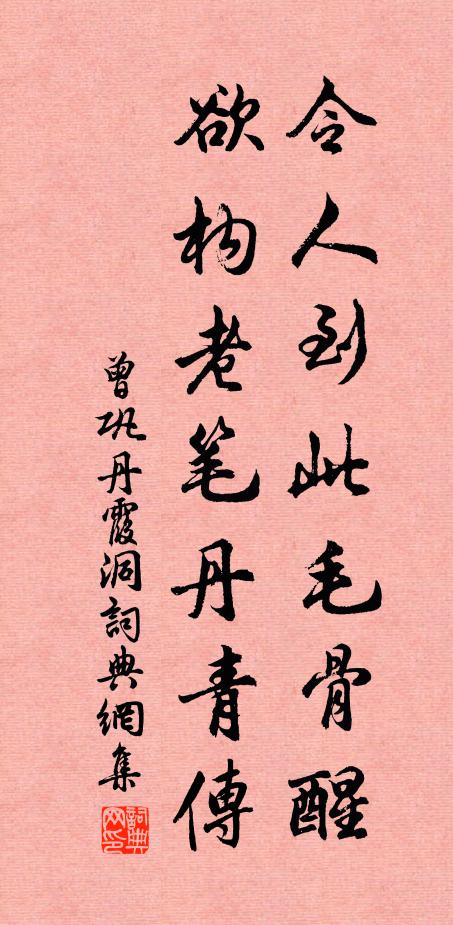 令人到此毛骨醒
欲构老笔丹青傳
曾巩丹霞洞詞典網集
詞典网印